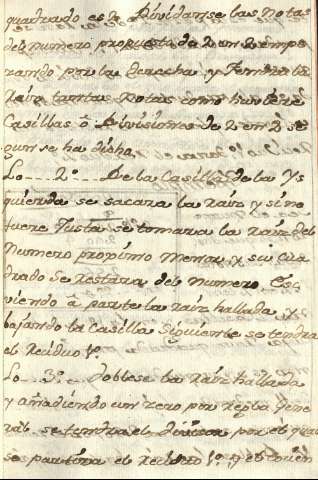 quadrado es 2 Dividanse las Notas
del numero propuesto de 2 en 2 empe
zando por la derecha y tendra la
Raiz tantas Notas como huviere
Casillas ô Divisiones de 2 en 2 se
gun se ha dicho.
Lo 2º De la Casilla de la Ys
quierda se sacara la raiz y si no
fuere Justa se tomara la raiz del
Numero proximo menor y su Cua
drado se restara del numero. Esc
viendo â parte la raiz hallada y
bajando la Casilla Siguiente se tendra
el Reciduo 1º.
Lo 3º Doblese la raiz hallada
y añadiendo un zero por regla Gene
ral se tendra el divisor por el qual
se partira el Reciduo 1º y el cocien